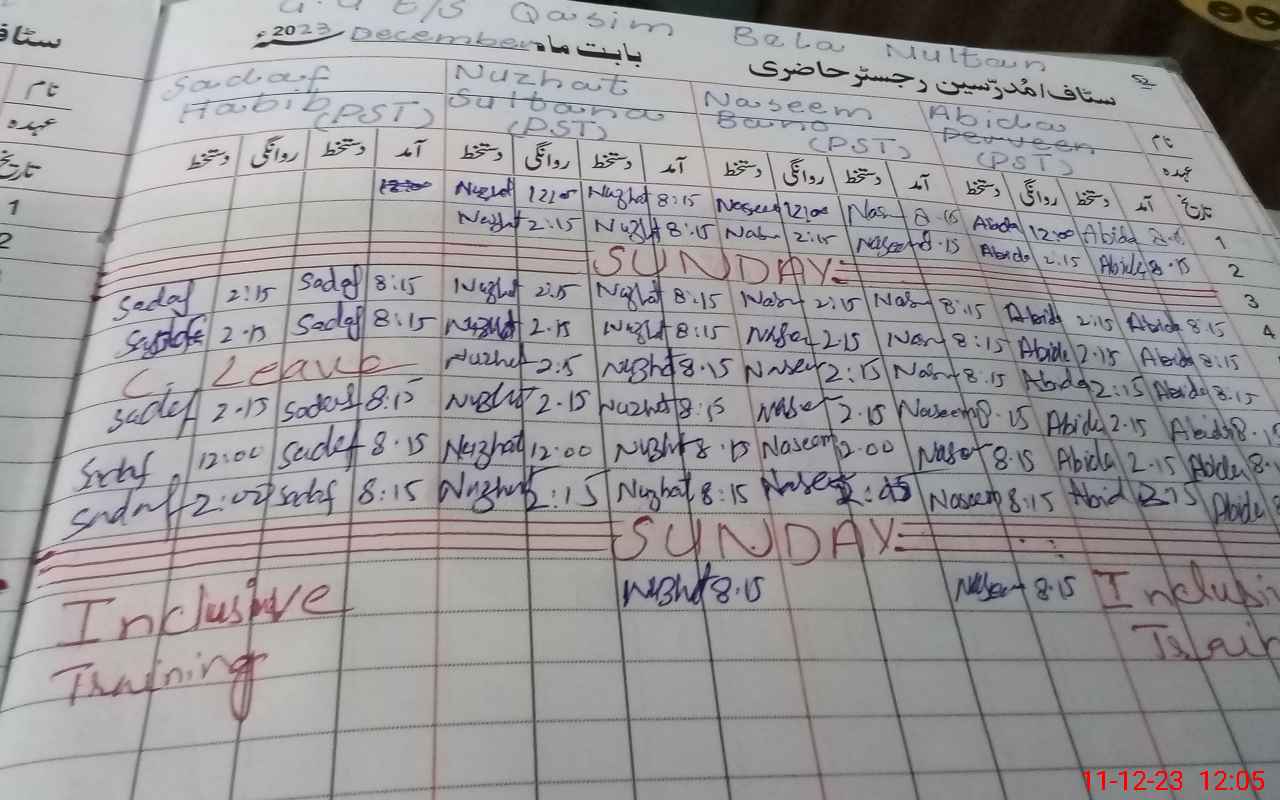 G.G E/S Qasim Bela Multan
سٹاف/مُدرّسین رجسٹر حاضری بابت ماہ December 2023ء
نام Abida Perveen (PST) Naseem Bano (PST) Nuzhat Sultana (PST) Sadaf Habib (PST)
عہدہ
تاریخ آمد دستخط روانگی دستخط آمد دستخط روانگی دستخط آمد دستخط روانگی دستخط آمد دستخط روانگی دستخط
1 Abida 12:00 Abida 8:15 Nas 12:00 Naseem Nuzhat 8:15 12:00 Nuzhat
2 Abida 8:15 2:15 Abida Naseem 8:15 2:15 Nas Nuzhat 8:15 2:15 Nuzhat
3 SUNDAY
4 Sadaf 2:15 Sadaf 8:15 Nuzhat 2:15 Nuzhat 8:15 Nasm 2:15 Nasm 8:15 Abida 2:15 Abida 8:15
2.15 Sadaf 8:15 Nuzhat 2.15 Nuzht 8:15 Nasem 2.15 Nasm 8:15 Abida 2.15 Abida 8:15
C. Leave Nuzhet 2:15 Nuzhat 8.15 Nasem 2:15 Nasm 8.15 Abida 2:15 Abida 8:15
Sadef 2.15 Sadaf 8:15 Nuzhat 2.15 Nuzhat 8:15 Nasem 2.15 Naseem 8.15 Abida 2.15 Abida 8.15
Sadaf 12:00 Sadef 8.15 Nuzhat 12:00 Nuzhat 8.15 Naseem 2.00 Nasem 8.15 Abida 2.15 Abida 8.
Sadaf 2:00 Sadaf 8:15 Nuzhat 2:15 Nuzhat 8:15 Naseem Naseem 8:15 Abid 2:15 Abida 8
SUNDAY
Inclusive Nuzhat 8.15 Naseem 8.15 Inclusi
Training Train
سٹاف
نام
عہدہ
تاریخ
1
2
11-12-23 12:05